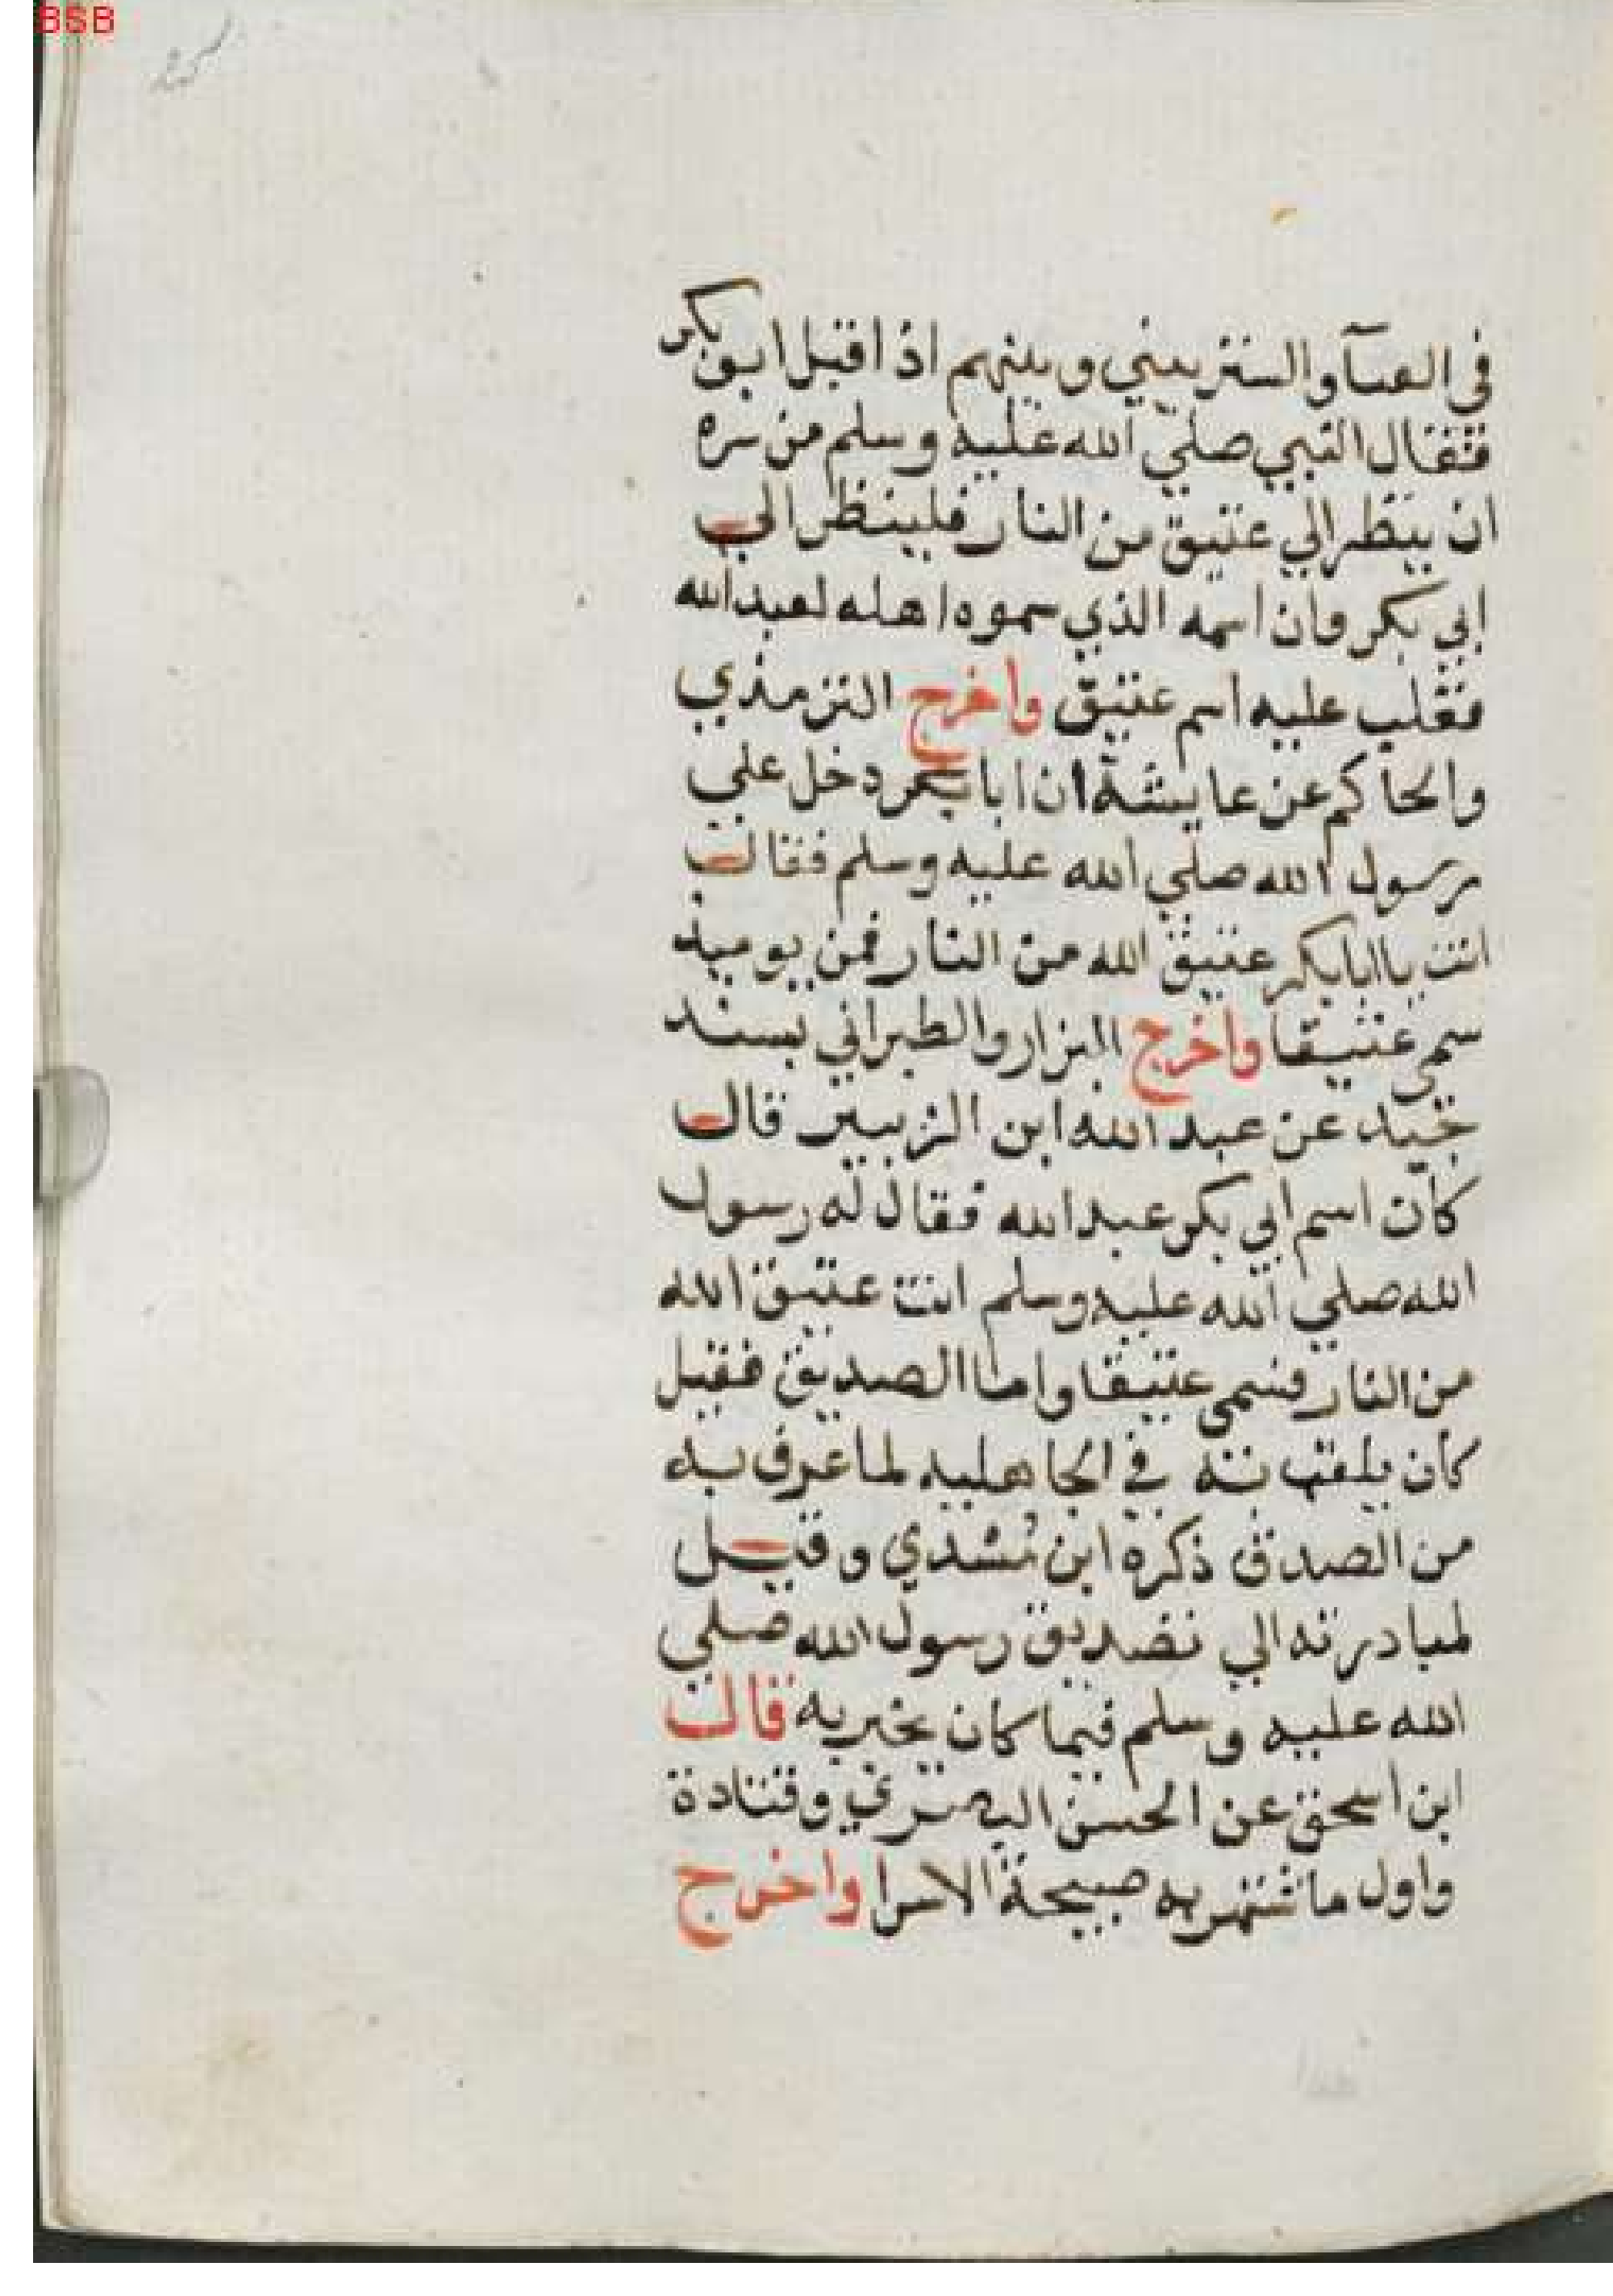 BSB
في الفنآ والستر بيني وبينهم اذ اقبل ابو بكر
فقال النبي صلي الله عليه وسلم من سره
ان ينظر الي عتيق من النار فلينظر الي
ابي بكر وان اسمه الذي سموه اهله لعبد الله
فغلب عليه اسم عتيق واخرج الترمذي
والحاكم عن عايشة ان ابا بكر دخل علي
رسول الله صلي الله عليه وسلم فقال
انت يا ابا بكر عتيق الله من النار فمن يوميذ
سمي عتيقا واخرج البزار والطبراني بسند
جيد عن عبد الله ابن الزبير قال
كان اسم ابي بكر عبد الله فقال له رسول
الله صلي الله عليه وسلم انت عتيق الله
من النار فسمي عتيقا واما الصديق فقيل
كان يلقب به في الجاهليه لما عرف به
من الصدق ذكره ابن مسدي وقيل
لمبادرته الي تصديق رسول الله صلي
الله عليه وسلم فيما كان يخبر به قال
ابن اسحق عن الحسن البصري وقتادة
واول ما شتهر به صبيحة الاسرا واخرج